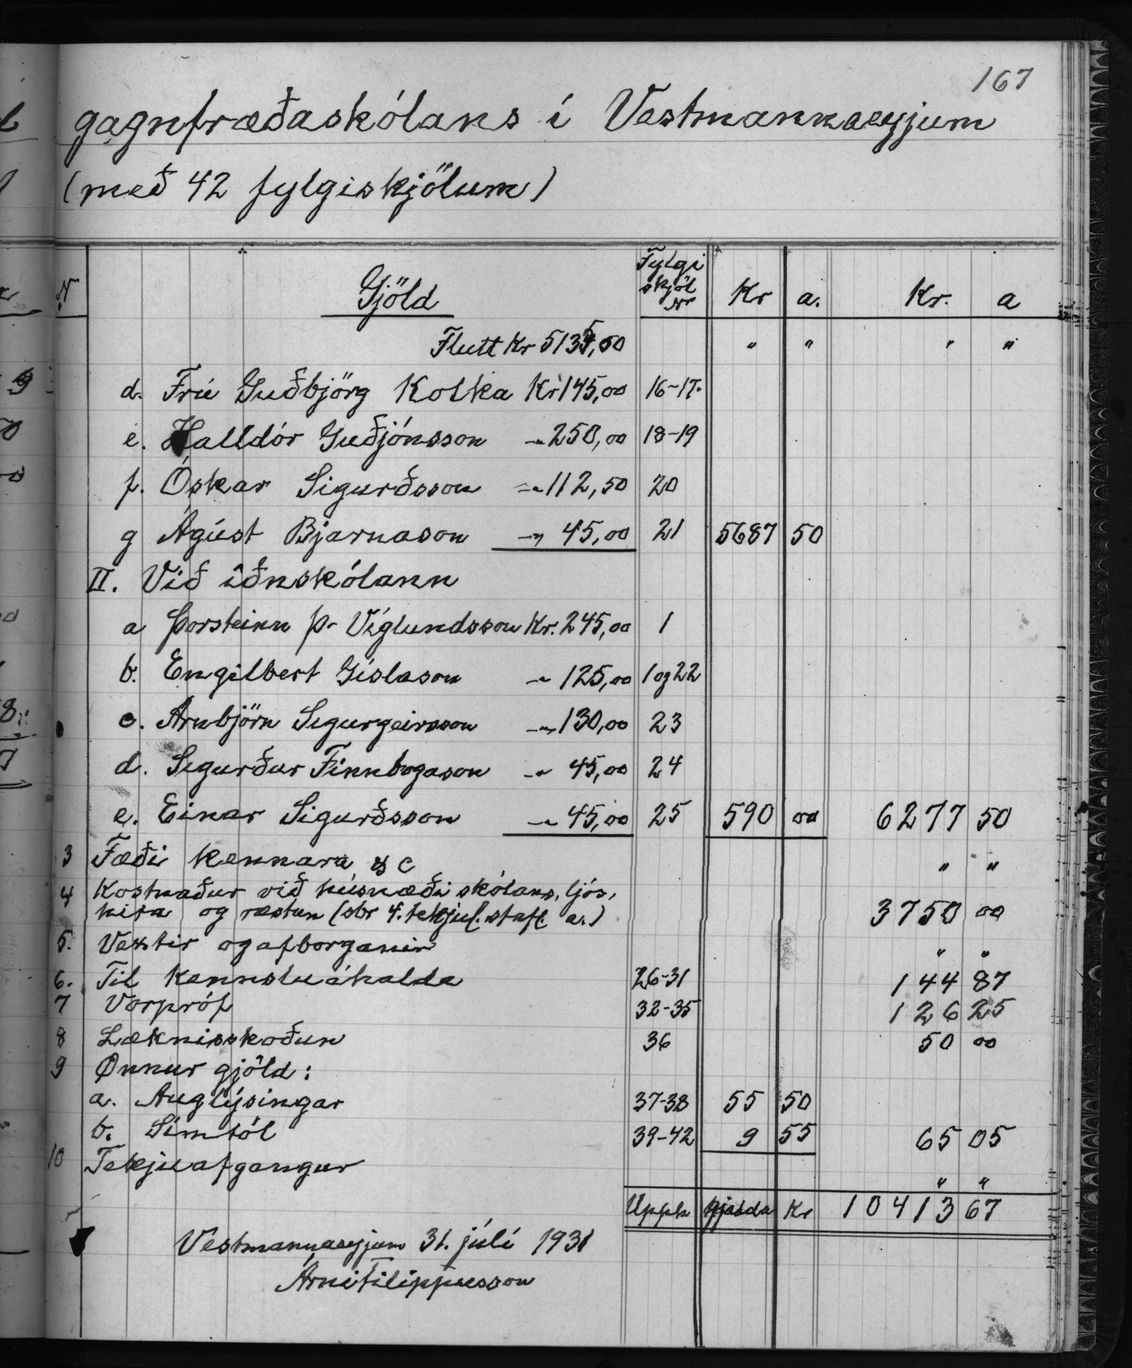 167
gagnfræðaskólans í Vestmannaeyjum
(með 42 fylgiskjölum)
N Gjöld Fylgi skjöl Nr Kr a. Kr. a
Flutt Kr 5135,00 " " " "
d. Frú Guðbjörg Kolka Kr 145,00 16-17.
e. Halldór Guðjónsson -"- 250,00 18-19
f. Óskar Sigurðsson -"- 112,50 20
g Ágúst Bjarnason -"- 45,00 21 5687 50
II. Við iðnskólann
a Þorsteinn Þ. Víglundsson Kr. 245,00 1
b. Engilbert Gíslason -"- 125,00 1 og 22
c. Arnbjörn Sigurgeirsson -"- 130,00 23
d. Sigurður Finnbogason -"- 45,00 24
e. Einar Sigurðsson -"- 45,00 25 590 00 6277 50
3 Fæði kennara & c " "
4 Kostnaður við húsnæði skólans, ljós,
hita og ræstun (sbr 4. tekjul. stafl. a.) 3750 00
5. Vextir og afborganir " "
6. Til kennsluáhalda 26-31 144 87
7 Vorpróf 32-35 126 25
8 Læknisskoðun 36 50 00
9 Önnur gjöld:
a. Auglýsingar 37-38 55 50
b. Símtöl 39-42 9 55 65 05
10 Tekjuafgangur " "
Upph gjalda Kr 10413 67
Vestmannaeyjum 31. júlí 1931
Árni Filippusson